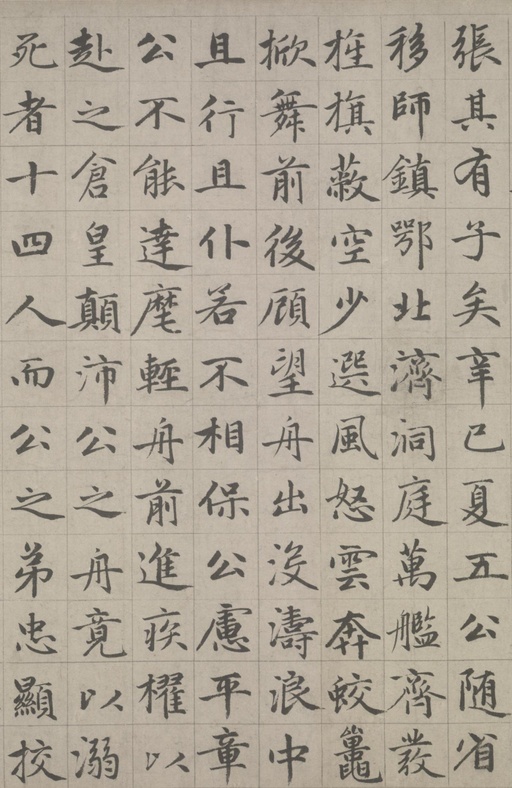 張其有子矣辛巳夏五公随省
移師鎮鄂北濟洞庭萬艦齊發
旌旗蔽空少選風怒雲奔蛟鼉
掀舞前後顧望舟出沒濤浪中
且行且仆若不相保公慮平章
公不能達麾輕舟前進疾櫂以
赴之倉皇顛沛公之舟竟以溺
死者十四人而公之弟忠顯挍